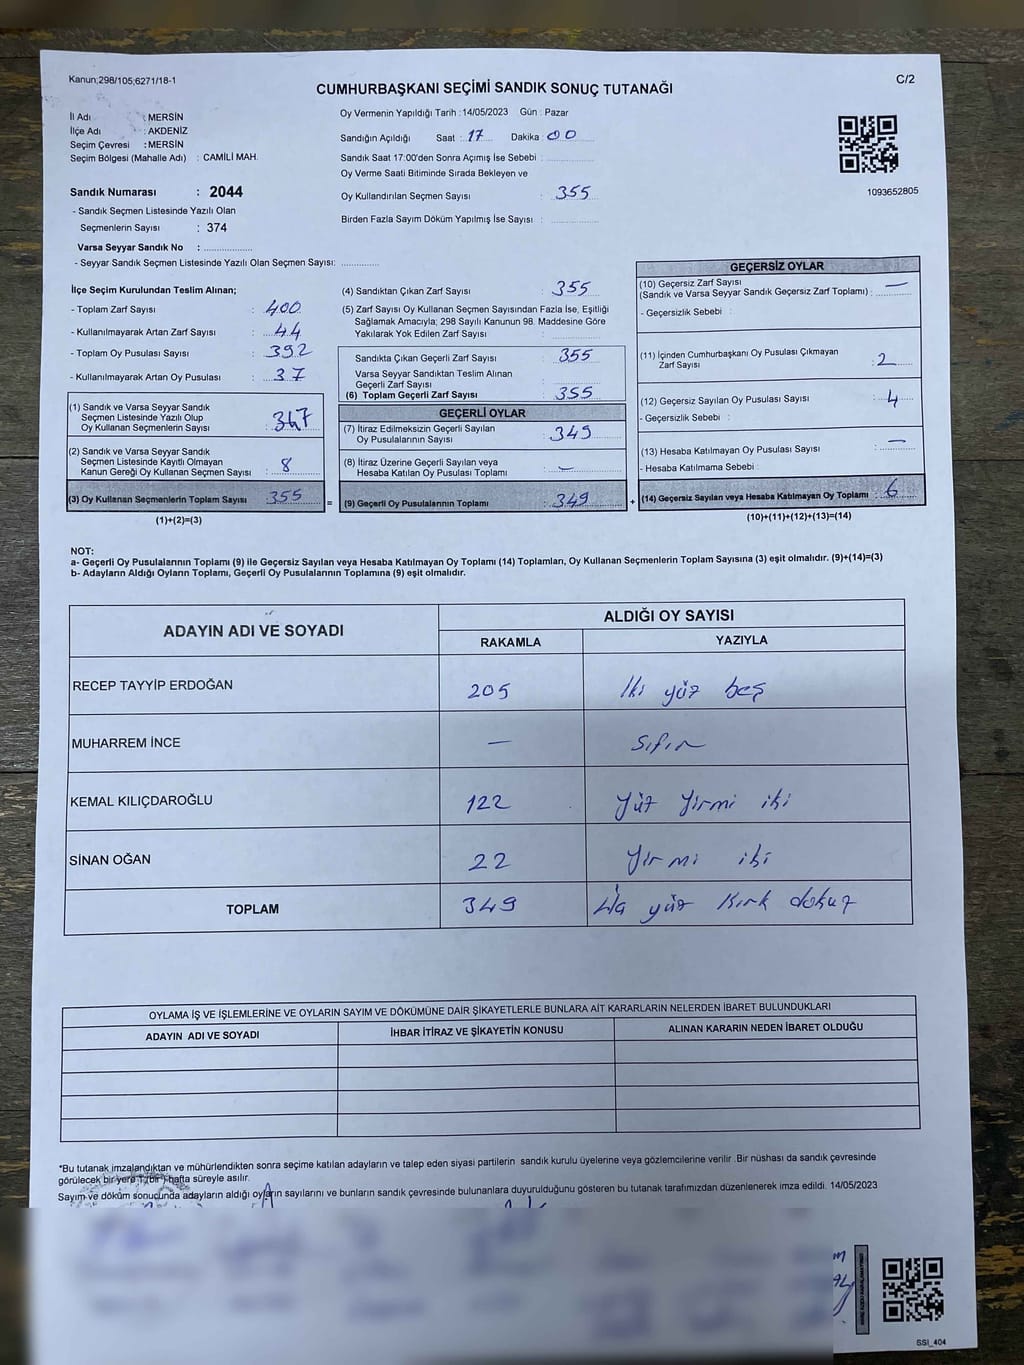 Kanun;298/105;6271/18-1
C/2
CUMHURBAŞKANI SEÇİMİ SANDIK SONUÇ TUTANAĞI
İl Adı : MERSİN
İlçe Adı : AKDENİZ
Seçim Çevresi : MERSİN
Seçim Bölgesi (Mahalle Adı) : CAMİLİ MAH.
Sandık Numarası : 2044
- Sandık Seçmen Listesinde Yazılı Olan
Seçmenlerin Sayısı : 374
Varsa Seyyar Sandık No :
- Seyyar Sandık Seçmen Listesinde Yazılı Olan Seçmen Sayısı:
Oy Vermenin Yapıldığı Tarih : 14/05/2023 Gün : Pazar
Sandığın Açıldığı Saat : 17 Dakika : 00
Sandık Saat 17:00'den Sonra Açımış İse Sebebi :
Oy Verme Saati Bitiminde Sırada Bekleyen ve
Oy Kullandırılan Seçmen Sayısı : 355
Birden Fazla Sayım Döküm Yapılmış İse Sayısı :
1093652805
İlçe Seçim Kurulundan Teslim Alınan;
- Toplam Zarf Sayısı : 400
- Kullanılmayarak Artan Zarf Sayısı : 44
- Toplam Oy Pusulası Sayısı : 392
- Kullanılmayarak Artan Oy Pusulası : 37
(1) Sandık ve Varsa Seyyar Sandık
Seçmen Listesinde Yazılı Olup
Oy Kullanan Seçmenlerin Sayısı : 347
(2) Sandık ve Varsa Seyyar Sandık
Seçmen Listesinde Kayıtlı Olmayan
Kanun Gereği Oy Kullanan Seçmen Sayısı : 8
(3) Oy Kullanan Seçmenlerin Toplam Sayısı : 355
(1)+(2)=(3)
=
(4) Sandıktan Çıkan Zarf Sayısı : 355
(5) Zarf Sayısı Oy Kullanan Seçmen Sayısından Fazla İse, Eşitliği
Sağlamak Amacıyla; 298 Sayılı Kanunun 98. Maddesine Göre
Yakılarak Yok Edilen Zarf Sayısı :
Sandıkta Çıkan Geçerli Zarf Sayısı : 355
Varsa Seyyar Sandıktan Teslim Alınan
Geçerli Zarf Sayısı :
(6) Toplam Geçerli Zarf Sayısı : 355
GEÇERLİ OYLAR
(7) İtiraz Edilmeksizin Geçerli Sayılan
Oy Pusulalarının Sayısı : 349
(8) İtiraz Üzerine Geçerli Sayılan veya
Hesaba Katılan Oy Pusulası Toplamı : —
(9) Geçerli Oy Pusulalarının Toplamı : 349
+
GEÇERSİZ OYLAR
(10) Geçersiz Zarf Sayısı
(Sandık ve Varsa Seyyar Sandık Geçersiz Zarf Toplamı) : —
- Geçersizlik Sebebi :
(11) İçinden Cumhurbaşkanı Oy Pusulası Çıkmayan
Zarf Sayısı : 2
(12) Geçersiz Sayılan Oy Pusulası Sayısı : 4
- Geçersizlik Sebebi :
(13) Hesaba Katılmayan Oy Pusulası Sayısı : —
- Hesaba Katılmama Sebebi :
(14) Geçersiz Sayılan veya Hesaba Katılmayan Oy Toplamı : 6
(10)+(11)+(12)+(13)=(14)
NOT:
a- Geçerli Oy Pusulalarının Toplamı (9) ile Geçersiz Sayılan veya Hesaba Katılmayan Oy Toplamı (14) Toplamları, Oy Kullanan Seçmenlerin Toplam Sayısına (3) eşit olmalıdır. (9)+(14)=(3)
b- Adayların Aldığı Oyların Toplamı, Geçerli Oy Pusulalarının Toplamına (9) eşit olmalıdır.
ADAYIN ADI VE SOYADI ALDIĞI OY SAYISI
RAKAMLA YAZIYLA
RECEP TAYYİP ERDOĞAN 205 İki yüz beş
MUHARREM İNCE — Sıfır
KEMAL KILIÇDAROĞLU 122 Yüz Yirmi iki
SİNAN OĞAN 22 Yirmi iki
TOPLAM 349 yüz Kırk dokuz
OYLAMA İŞ VE İŞLEMLERİNE VE OYLARIN SAYIM VE DÖKÜMÜNE DAİR ŞİKAYETLERLE BUNLARA AİT KARARLARIN NELERDEN İBARET BULUNDUKLARI
ADAYIN ADI VE SOYADI İHBAR İTİRAZ VE ŞİKAYETİN KONUSU ALINAN KARARIN NEDEN İBARET OLDUĞU
*Bu tutanak imzalandıktan ve mühürlendikten sonra seçime katılan adayların ve talep eden siyasi partilerin sandık kurulu üyelerine veya gözlemcilerine verilir. Bir nüshası da sandık çevresinde
görülecek bir yere 1 (bir) hafta süreyle asılır.
Sayım ve döküm sonucunda adayların aldığı oyların sayılarını ve bunların sandık çevresinde bulunanlara duyurulduğunu gösteren bu tutanak tarafımızdan düzenlenerek imza edildi. 14/05/2023
SSI_404